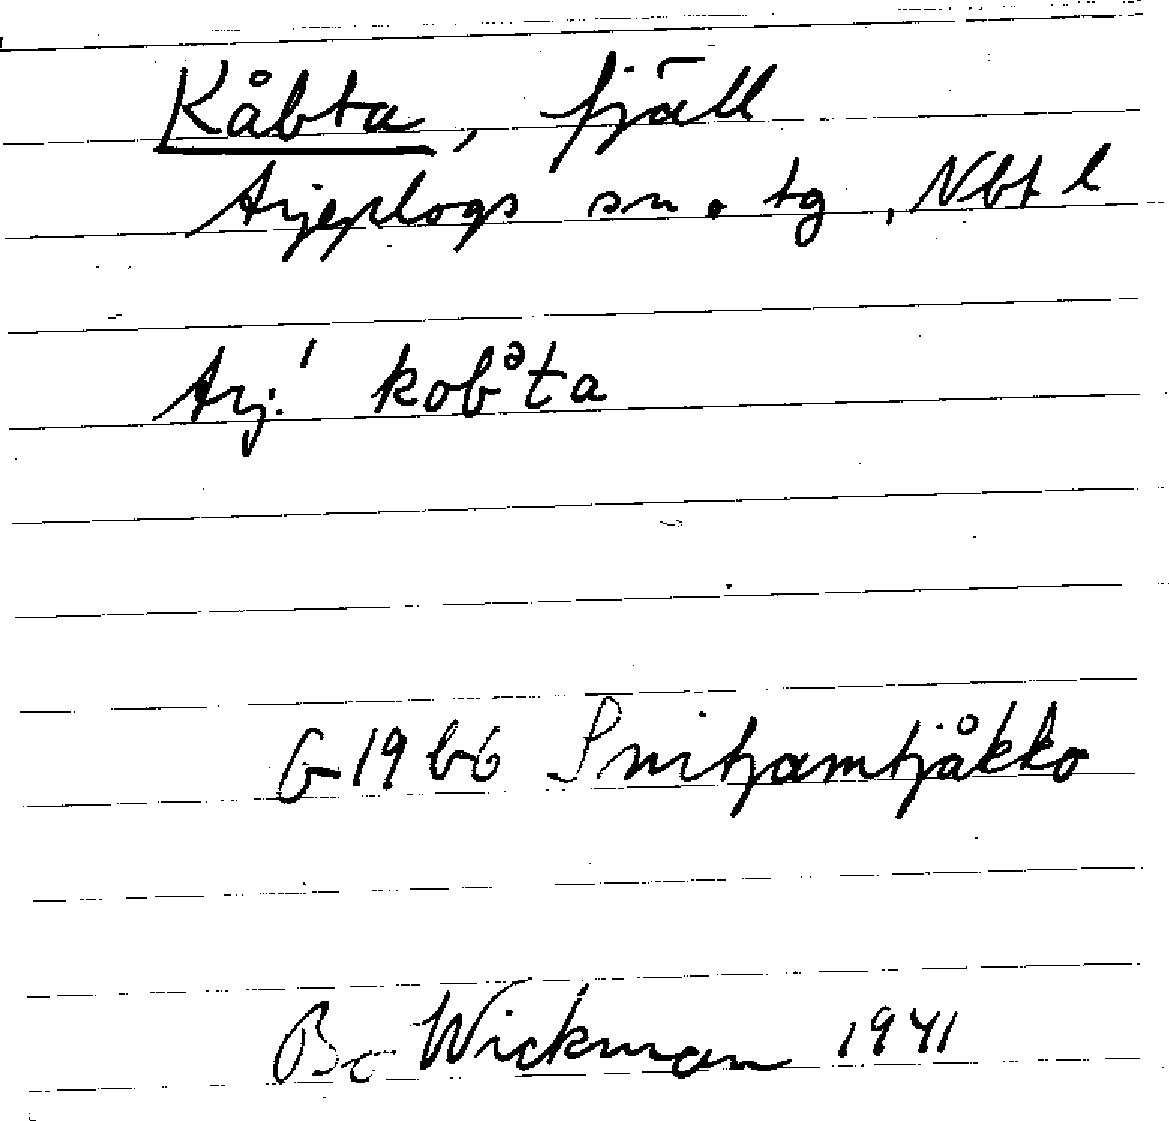 Kåbta, fjäll
Arjeplogs sn o. tg, Nbt l
Arj.' kobᵊta
G-19 b6 Snitjamtjåkko
Bo Wickman 1941